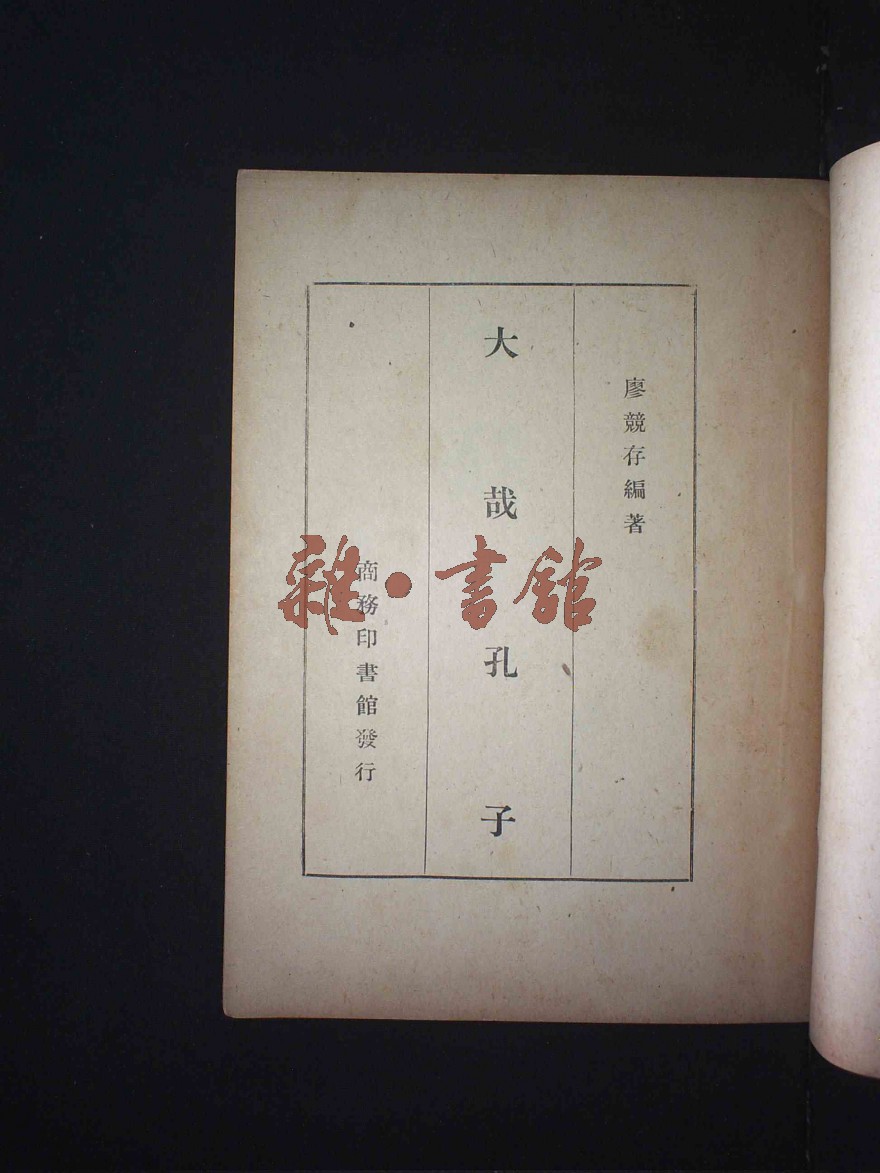 廖競存編著
大哉孔子
商務印書館發行
雜·書館